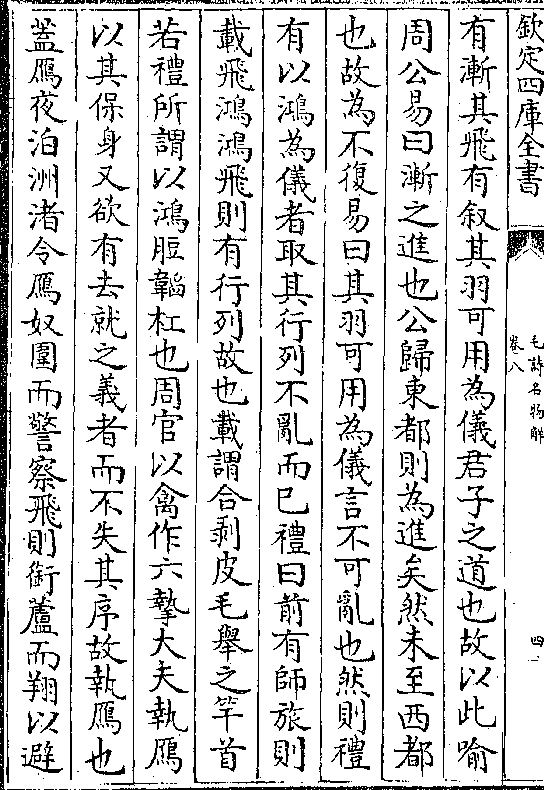 欽定四庫全書
毛詩名物解
卷八
四
有漸其飛有叙其羽可用為儀君子之道也故以此喻
周公易曰漸之進也公歸東都則為進矣然未至西都
也故為不復易曰其羽可用為儀言不可亂也然則禮
有以鴻為儀者取其行列不亂而已禮曰前有師旅則
載飛鴻鴻飛則有行列故也載謂合剥皮毛舉之竿首
若禮所謂以鴻脰韜杠也周官以禽作六摯大夫執鴈
以其保身又欲有去就之義者而不失其序故執鴈也
蓋鴈夜泊洲渚令鴈奴圍而警察飛則銜蘆而翔以避